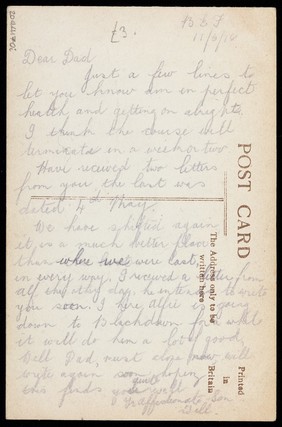 £3.
B E F
11/5/18
Dear Dad
Just a few lines to
let you know am in perfect
health and getting on alright.
I think the course will
terminate in a week or two
Have received two letters
from you the last was
dated 4th May.
We have shifted again
it is a much better place
than where we were last
in every way. I received a letter from
Alf the other day, he intends to write
you soon. I hear Alfie is going
down to Blackdown for what
it will do him a lot of good.
Well Dad, must close now will
write again soon hoping
this finds you quite well
Yr affectionate Son
Bill.
POST CARD
The Address only to be
written here
Printed
in
Britain